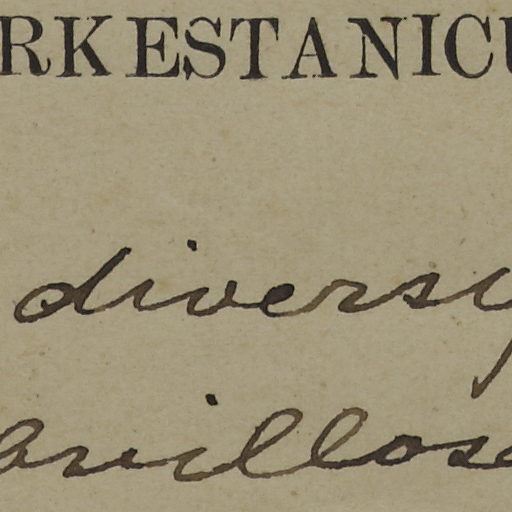 RKESTANICU
diversy
avillosa